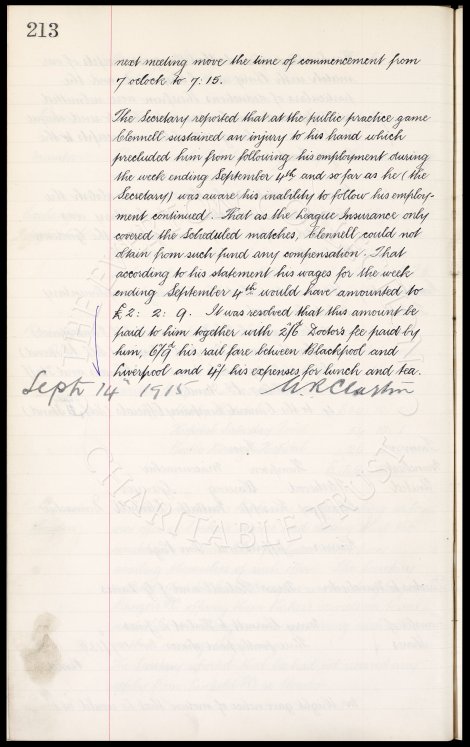 213
next meeting move the time of commencement from
7 oclock to 7.15.
The Secretary reported that at the public practice game
Clennell sustained an injury to his hand which
precluded him from following his employment during
the week ending September 4th and so far as he (the
Secretary) was aware his inability to follow his employ-
ment continued. That as the League Insurance only
covered the Scheduled matches, Clennell could not
obtain from such fund any compensation. That
according to his statement his wages for the week
ending September 4th would have amounted to
£2:2:9. It was resolved that this amount be
paid to him together with 2/6 Doctor's fee paid by
him, 6/9 his rail fare between Blackpool and
Liverpool and 4/- his expenses for lunch and tea.
Sept 14th 1915 W. R. Clayton
CHARITABLE TRUST